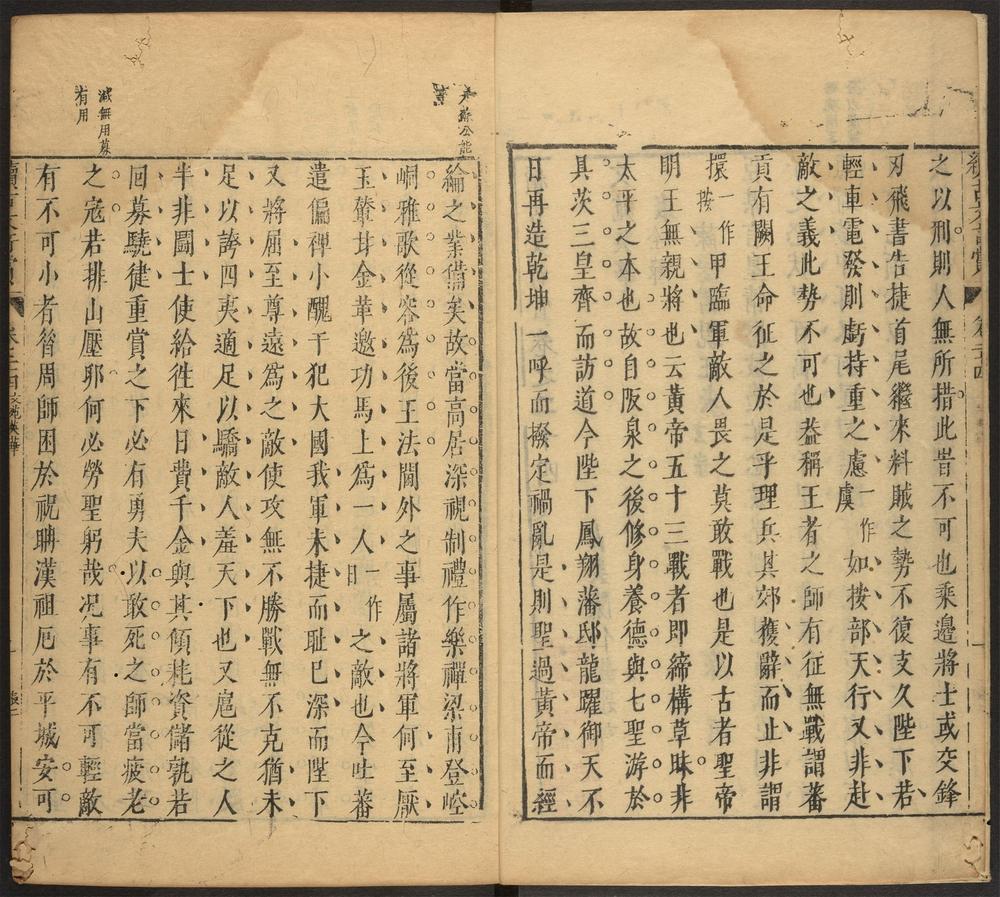 之以刑則人無所措此皆不可也乘邊將士或交鋒
刃飛書告捷首尾繼來料賊之勢不復支久陛下若
輕車電發則虧持重之慮一作虞如按部天行又非赴
敵之義此勢不可也葢稱王者之師有征無戰謂蕃
貢有闕王命征之於是乎理兵其郊獲辭而止非謂
擐一作按甲臨軍敵人畏之莫敢戰也是以古者聖帝
明王無親將也云黃帝五十三戰者即締構草昧非
太平之本也故自阪泉之後修身養德與七聖游於
具茨三皇齊而訪道今陛下鳳翔藩邸龍躍御天不
日再造乾坤一呼而撥定禍亂是則聖過黃帝而經
綸之業備矣故當高居深視制禮作樂禪梁甫登崆
峒雅歌從容爲後王法閫外之事屬諸將軍何至厭
玉輦甘金革邀功馬上爲一人一作日之敵也今吐蕃
遣偏裨小醜干犯大國我軍未捷而耻已深而陛下
又將屈至尊遠爲之敵使攻無不勝戰無不克猶未
足以誇四夷適足以驕敵人羞天下也又扈從之人
半非鬭士使給徃來日費千金與其傾耗資儲孰若
回募驍健重賞之下必有勇夫以敢死之師當疲老
之寇若排山壓耶何必勞聖躬哉况事有不可輕敵
有不可小者昝周師困於祝聃漢祖厄於平城安可
减無用募
有用